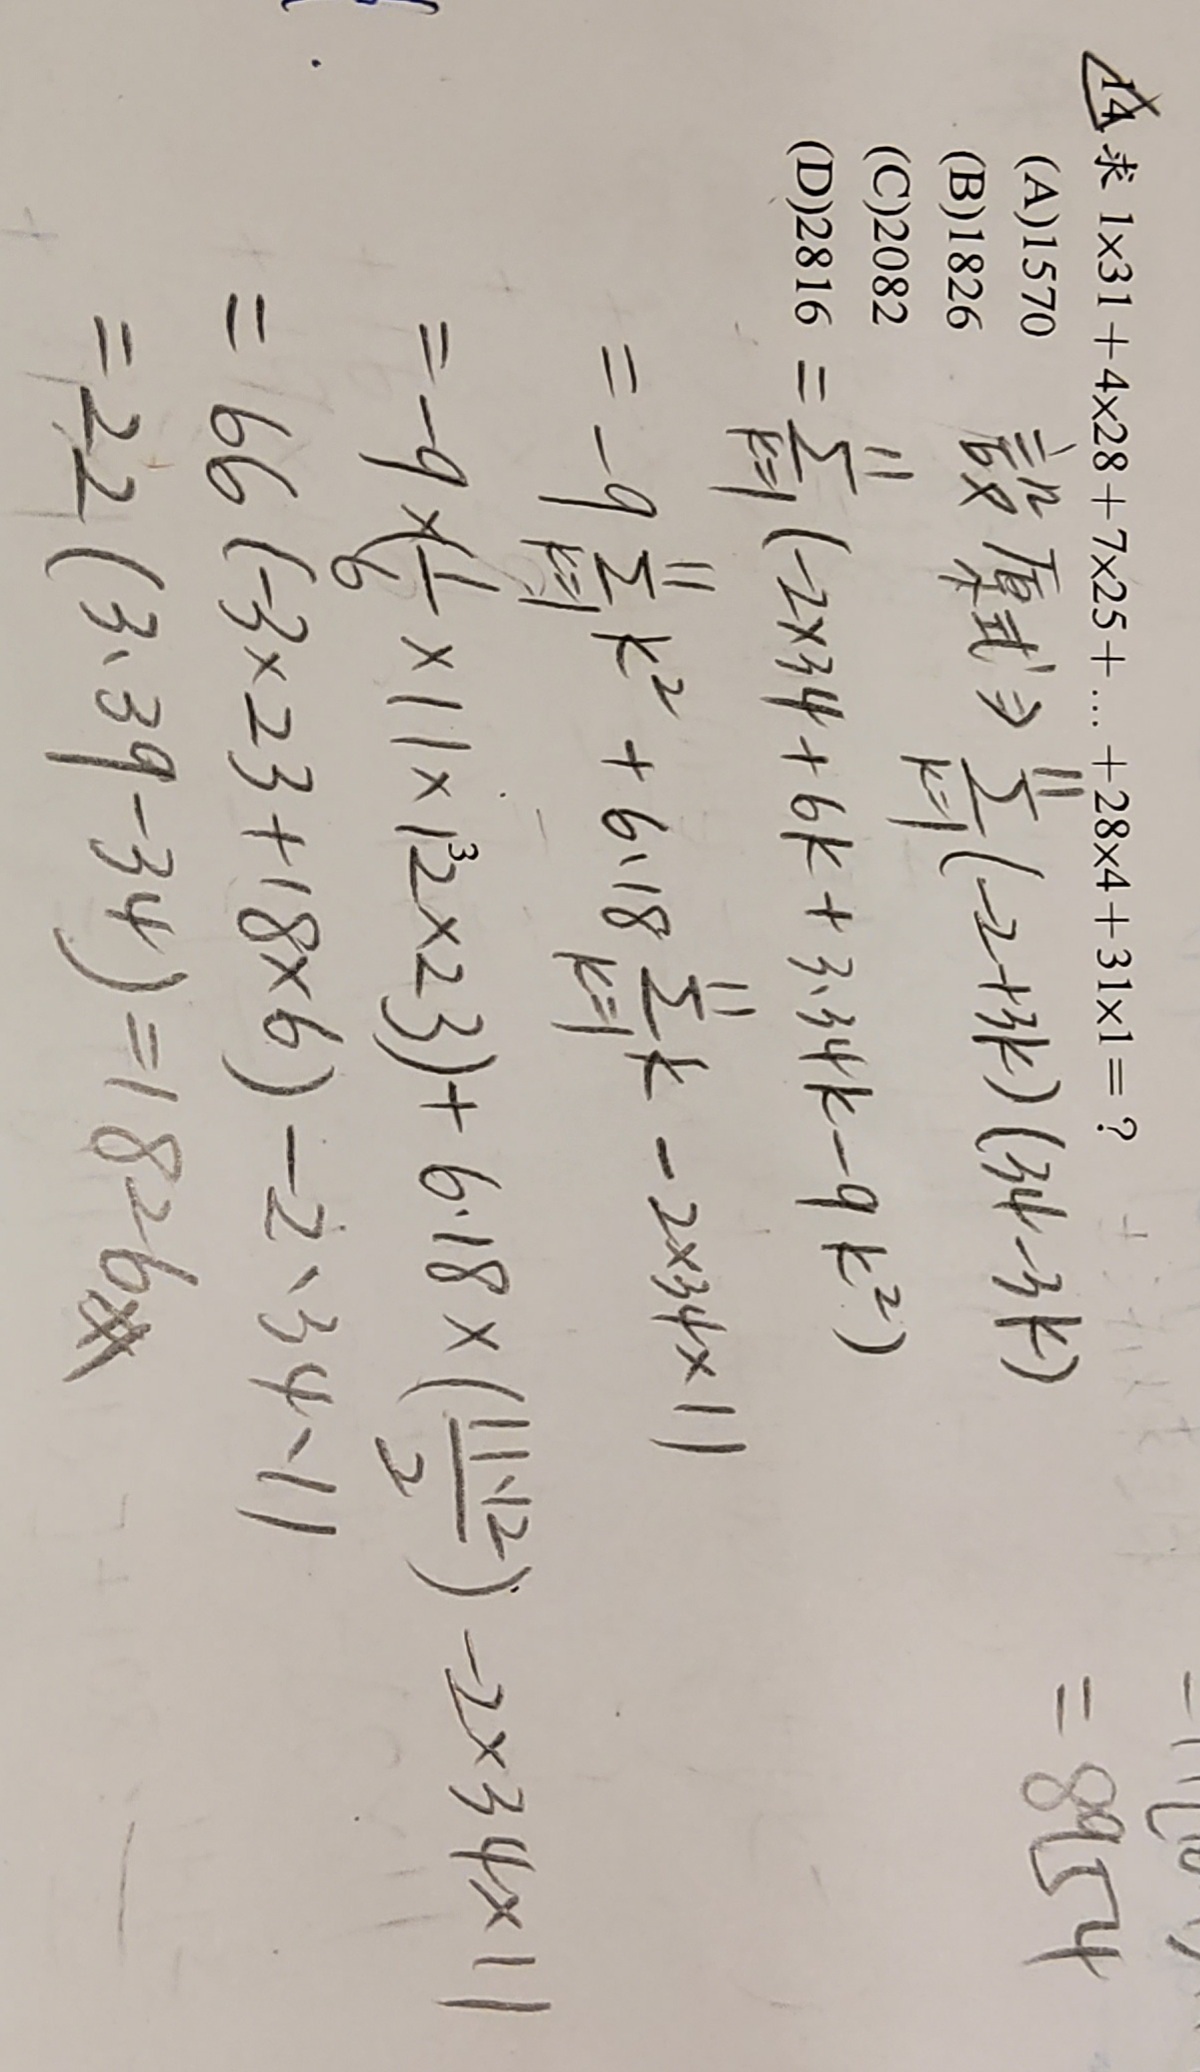 14. 求 1×31+4×28+7×25+...+28×4+31×1=?
(A)1570
(B)1826
(C)2082
(D)2816
設 原式 ⇒ Σ_{k=1}^{11} (-2+3k)(34-3k)
= Σ_{k=1}^{11} (-2×34+6k+3·34k-9k²)
= -9 Σ_{k=1}^{11} k² + 6·18 Σ_{k=1}^{11} k - 2×34×11
= -9×(1/6 ×11×12×23)+6·18×(11·12/2) -2×34×11
= 66(-3×23+18×6)-2·34·11
= 22(3·39-34)=1826
= 8954